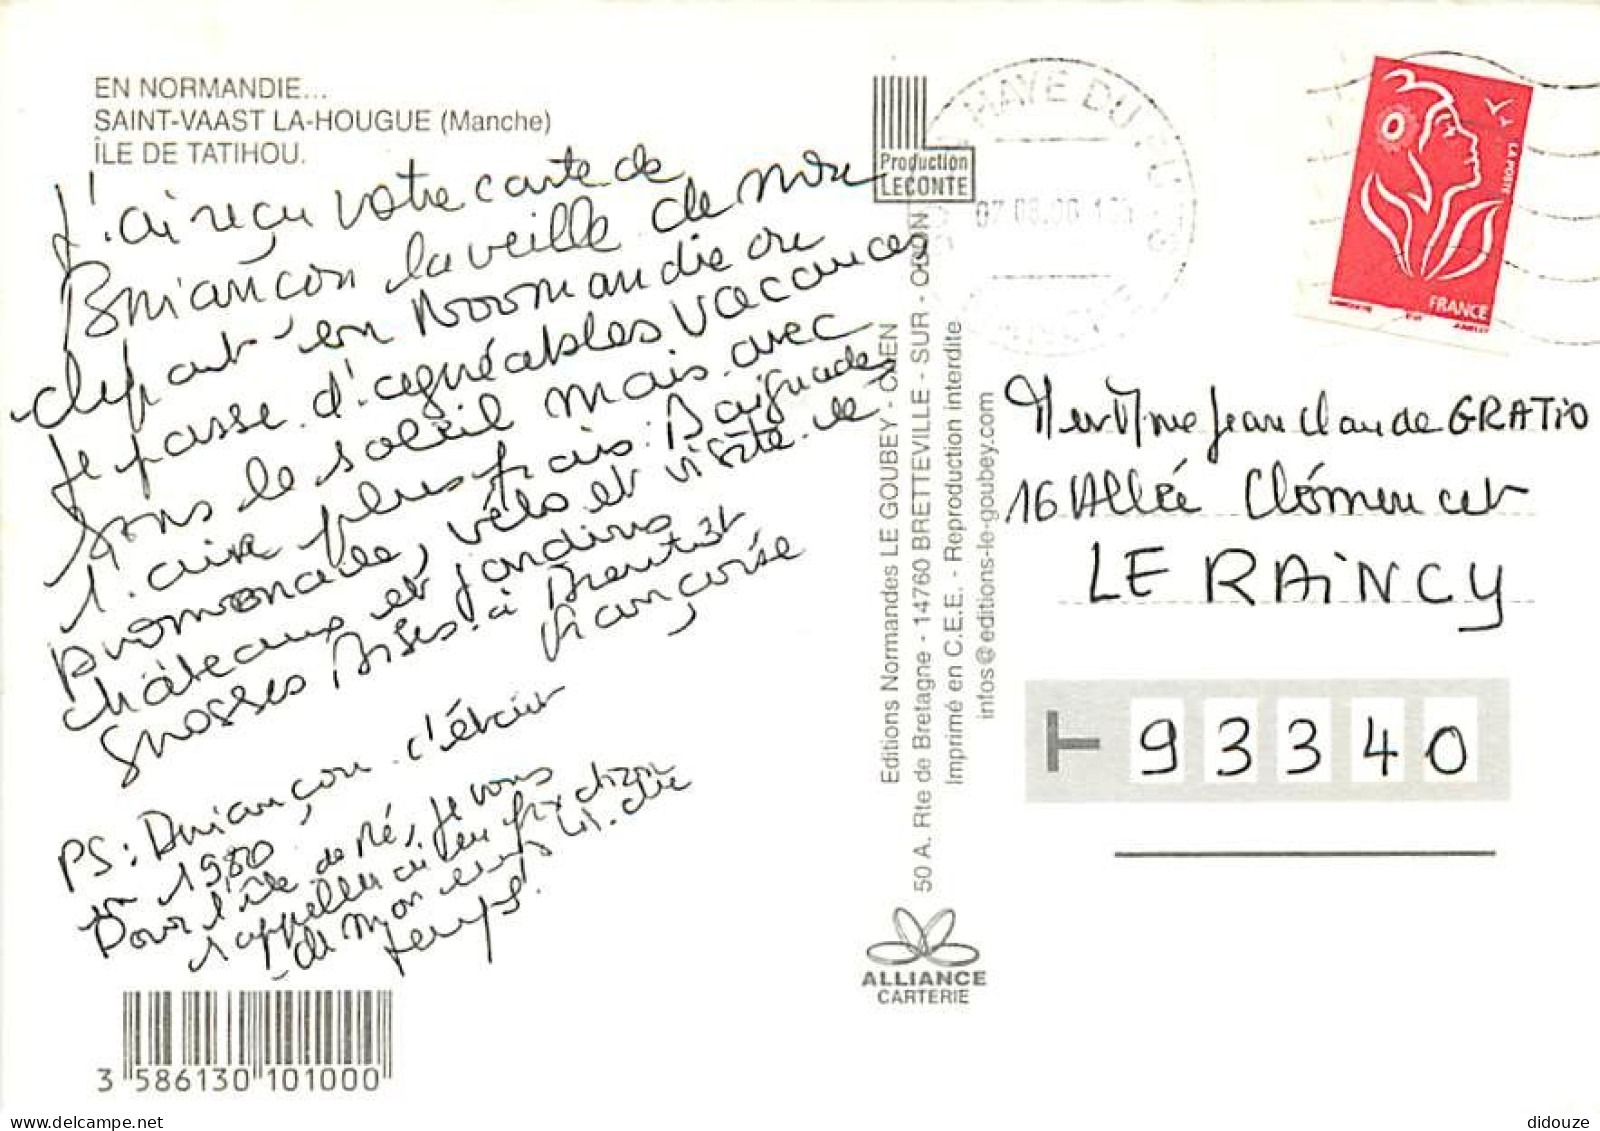 EN NORMANDIE...
SAINT-VAAST LA-HOUGUE (Manche)
ÎLE DE TATIHOU.
J'ai reçu votre carte de
Briançon la veille de notre
depart en Normandie ou
Je passe d'agréables vacances
sous le soleil mais avec
l'air plus frais. Baignades
promenades, vélo et visite de
châteaux et jardins
Grosses Bises à Bientôt
Françoise
PS: Briançon c'était
en 1980
Pour l'île de Ré, je vous
appellerai
de mon
temps.
3 586130 101000
Production
LECONTE
Editions Normandes LE GOUBEY - CAEN
50 A. Rte de Bretagne - 14760 BRETTEVILLE - SUR - ODON
Imprimé en C.E.E. - Reproduction interdite
infos@editions-le-goubey.com
ALLIANCE
CARTERIE
HAYE DU PUITS
LA POSTE
FRANCE
Mr et Mme Jean Claude GRATIO
16 Allée Clémencet
LE RAINCY
93340
didouze